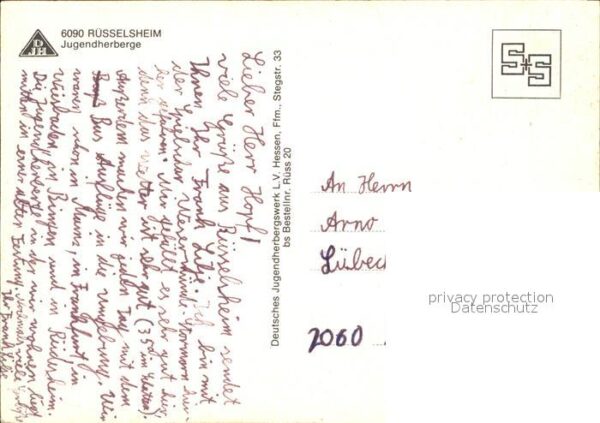 6090 RÜSSELSHEIM
Jugendherberge
DJH
Lieber Herr Hopf!
viele Grüße aus Rüsselsheim sendet
Ihnen Ihr Frank Lilje. Ich bin mit
der
her gefahren. Mir gefällt es sehr gut hier,
denn das Wetter ist sehr gut (35° im Schatten).
Außerdem machen wir jeden Tag mit dem
Bus Ausflüge in die Umgebung. Wir
waren schon in Mainz, in Frankfurt, in
Wiesbaden, in Bingen und in Rüdesheim.
Die Jugendherberge in der wir wohnen liegt
mitten in einer alten Festung. viele Grüße
Ihr Frank Lilje
Deutsches Jugendherbergswerk L.V. Hessen, Ffm., Stegstr. 33
bs Bestellnr. Rüss 20
S+S
An Herrn
Arno
Lübec
2060
privacy protection
Datenschutz